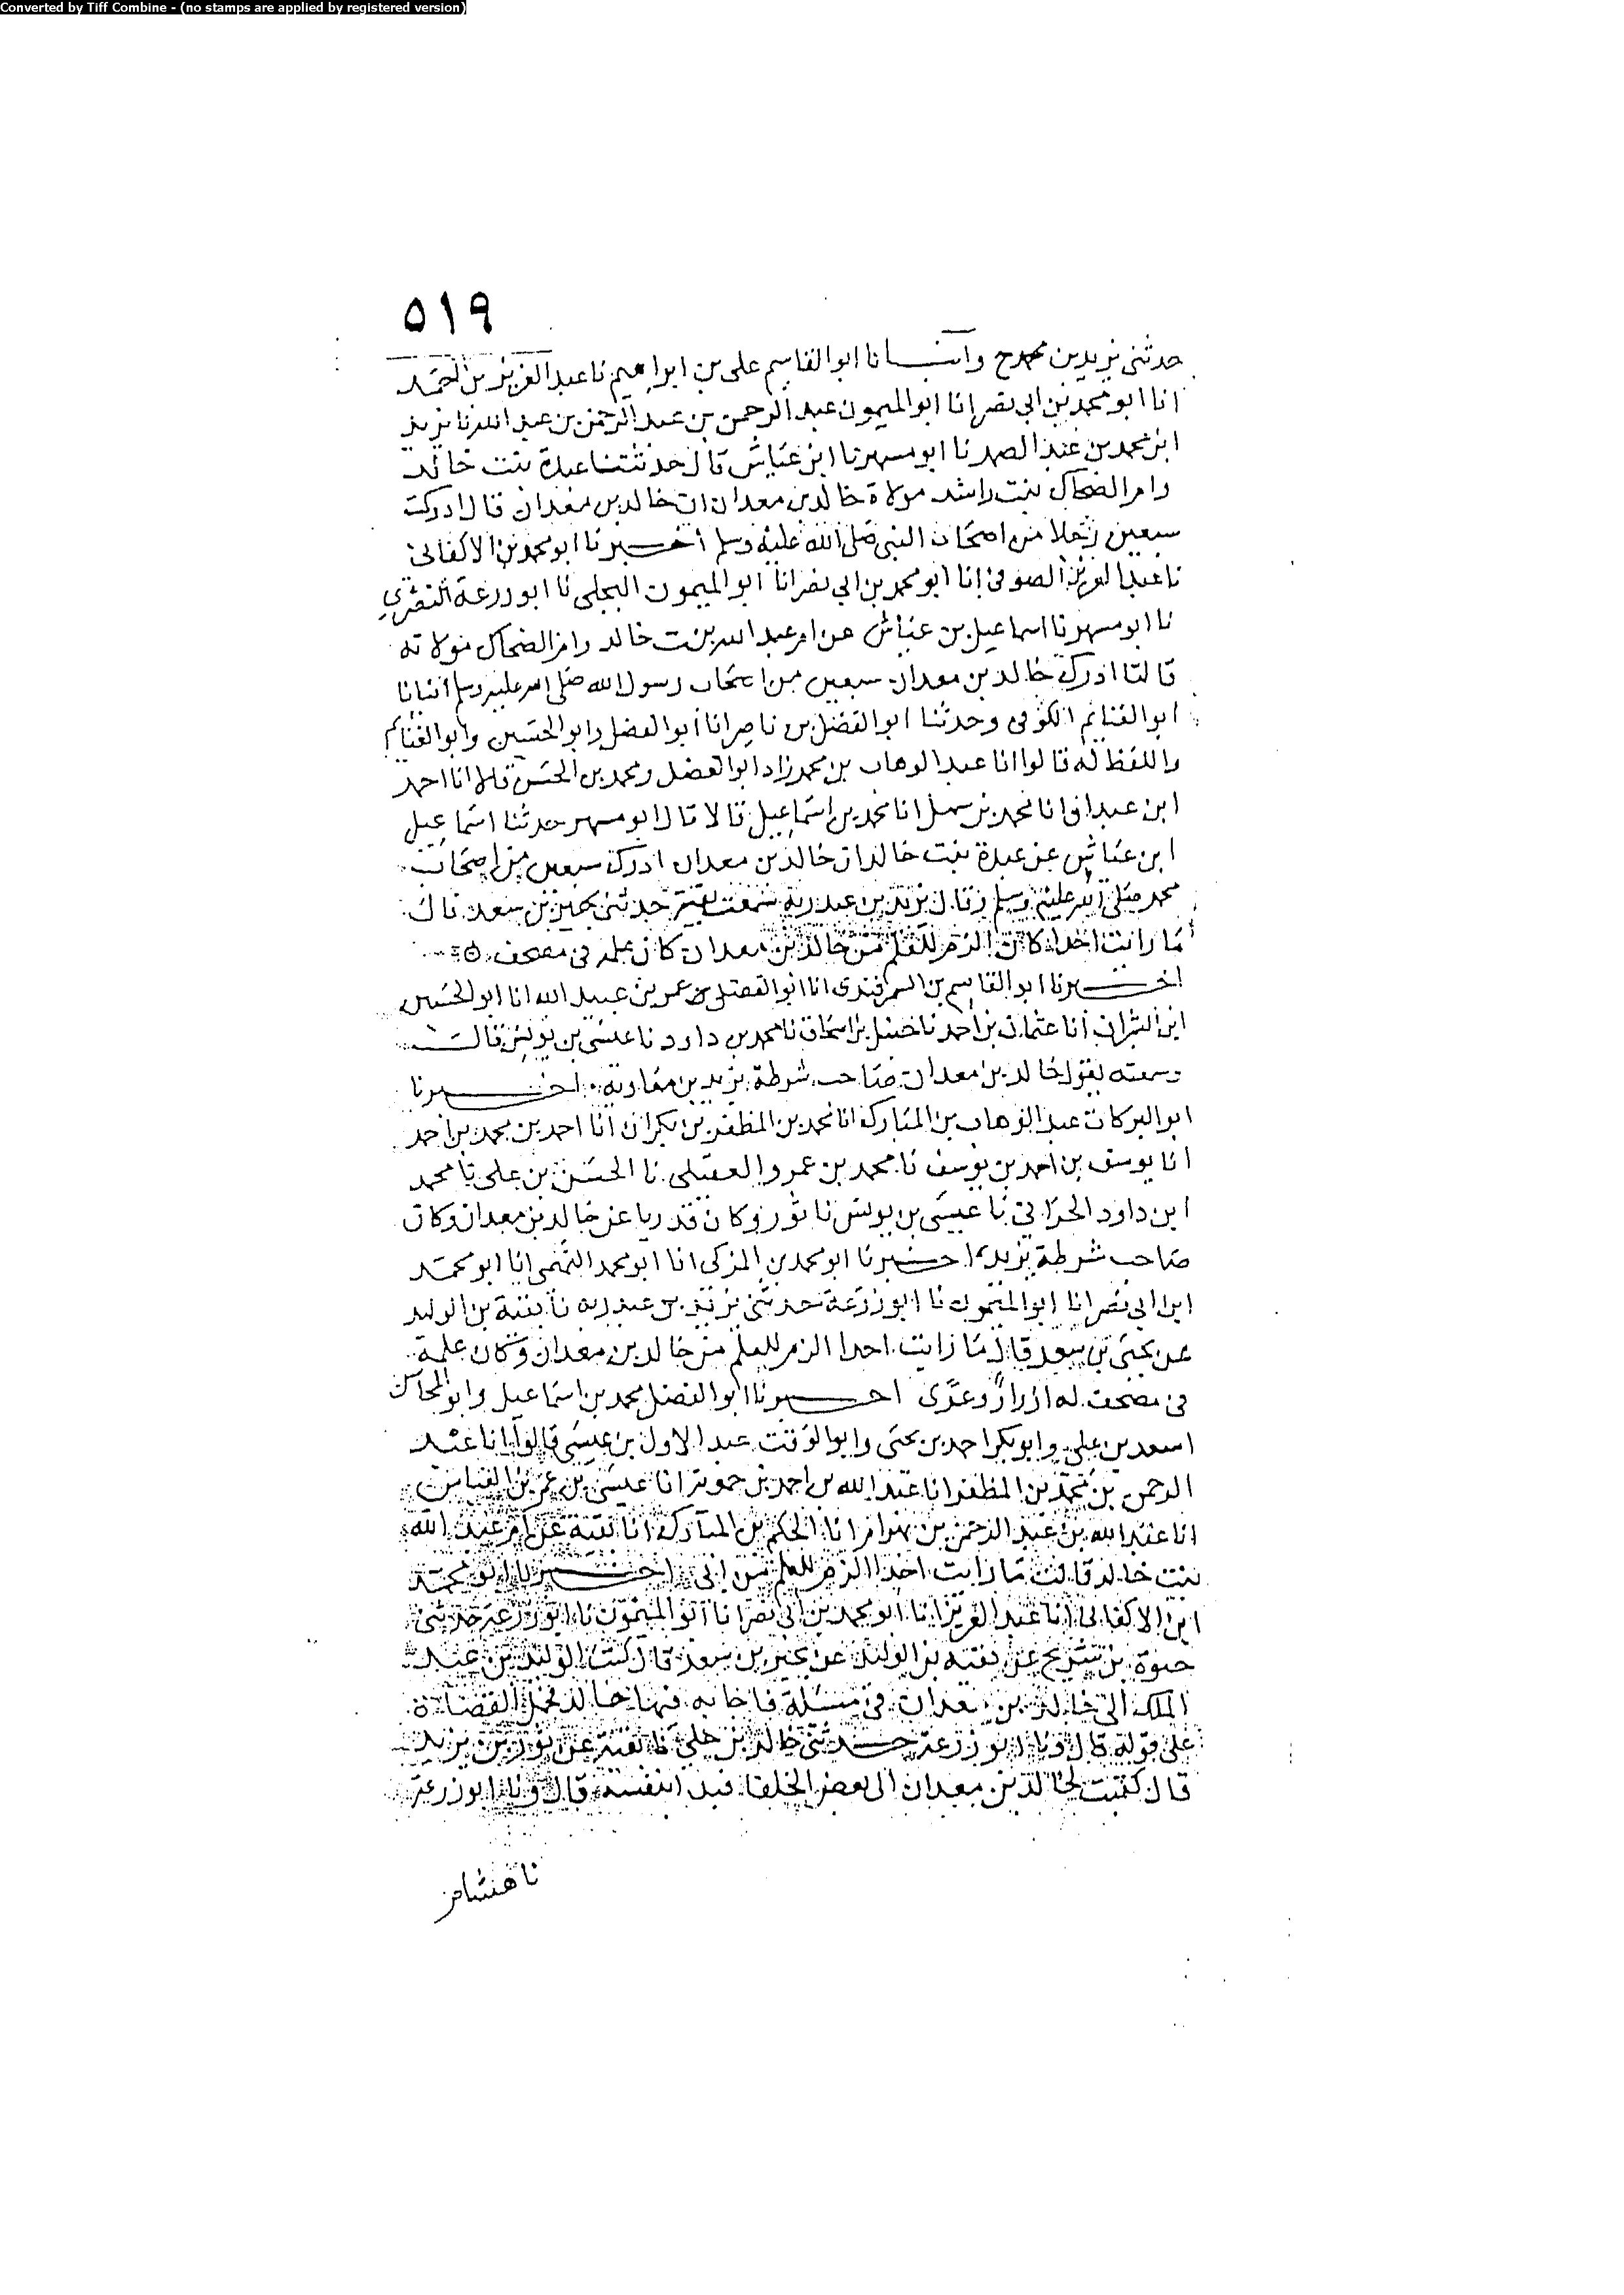 Converted by Tiff Combine - (no stamps are applied by registered version)
٥١٩
حدثنى يزيد بن محمد ح وانبانا ابو القاسم على بن ابراهيم نا عبد العزيز بن احمد
انا ابو محمد بن ابى نصر انا ابو الميمون عبد الرحمن بن عبد الرحمن بن عبد الله نا يزيد
ابن محمد بن عبد الصمد نا ابو مسهر نا ابن عياش قال حدثتنا عبدة بنت خالد
وام الضحاك بنت راشد مولاة خالد بن معدان ان خالد بن معدان قال ادركت
سبعين رجلا من اصحاب النبى صلى الله عليه وسلم اخبرنا ابو محمد بن الاكفانى
نا عبد العزيز الصوفى انا ابو محمد بن ابى نصر انا ابو الميمون البجلى نا ابو زرعة النصرى
نا ابو مسهر نا اسماعيل بن عياش عن ام عبد الله بنت خالد وام الضحاك مولاته
قالتا ادرك خالد بن معدان سبعين من اصحاب رسول الله صلى الله عليه وسلم انبانا
ابو الغنائم الكوفى وحدثنا ابو الفضل بن ناصر انا ابو الفضل وابو الحسين وابو الغنائم
واللفظ له قالوا انا عبد الوهاب بن محمد زاد ابو الفضل ومحمد بن الحسن قالا انا احمد
ابن عبدان انا محمد بن سهل انا محمد بن اسماعيل قال قال ابو مسهر حدثنا اسماعيل
ابن عياش عن عبدة بنت خالد ان خالد بن معدان ادرك سبعين من اصحاب
محمد صلى الله عليه وسلم وقال يزيد بن عبد ربه سمعت بقية حدثنى بحير بن سعد قال
ما رايت احدا كان الزم للعلم من خالد بن معدان كان علمه فى مصحف
اخبرنا ابو القاسم بن السمرقندى انا ابو الفضل بن عمر بن عبيد الله انا ابو الحسين
ابن بشران انا عثمان بن احمد نا حنبل بن اسحاق نا محمد بن داود نا عيسى بن يونس قال
وسمعته يقول خالد بن معدان صاحب شرطة يزيد بن معاوية اخبرنا
ابو البركات عبد الوهاب بن المبارك انا محمد بن المظفر بن بكران انا احمد بن محمد بن احمد
انا يوسف بن احمد بن يوسف نا محمد بن عمرو العقيلى نا الحسن بن على نا محمد
ابن داود الحرانى نا عيسى بن يونس نا ثور وكان قدريا عن خالد بن معدان وكان
صاحب شرطة يزيد اخبرنا ابو محمد بن المزكى انا ابو محمد التميمى انا ابو محمد
ابن ابى نصر انا ابو الميمون نا ابو زرعة حدثنى يزيد بن عبد ربه نا بقية بن الوليد
عن يحيى بن سعد قال ما رايت احدا الزم للعلم من خالد بن معدان وكان علمه
فى مصحف له ازرار وعرى اخبرنا ابو الفضل محمد بن اسماعيل وابو المحاسن
اسعد بن على وابو بكر احمد بن يحيى وابو الوقت عبد الاول بن عيسى قالوا انا عبد
الرحمن بن محمد بن المظفر انا عبد الله بن احمد بن حمويه انا عيسى بن عمر بن العباس
انا عبد الله بن عبد الرحمن بن بهرام انا الحكم بن المبارك انا بقية عن ام عبد الله
بنت خالد قالت ما رايت احدا الزم للعلم من ابى اخبرنا ابو محمد
ابن الاكفانى انا عبد العزيز انا ابو محمد بن ابى نصر انا ابو الميمون نا ابو زرعة حدثنى
حيوة بن شريح عن بقية بن الوليد عن بحير بن سعد قال كتب الوليد بن عبد
الملك الى خالد بن معدان فى مسئلة فاجابه فيها خالد فحمل القضاة
على قوله قال ونا ابو زرعة حدثنى خالد بن خلى نا بقية عن ثور بن يزيد
قال كتبت لخالد بن معدان الى بعض الخلفا فبدا بنفسه قال ونا ابو زرعة
نا هشام